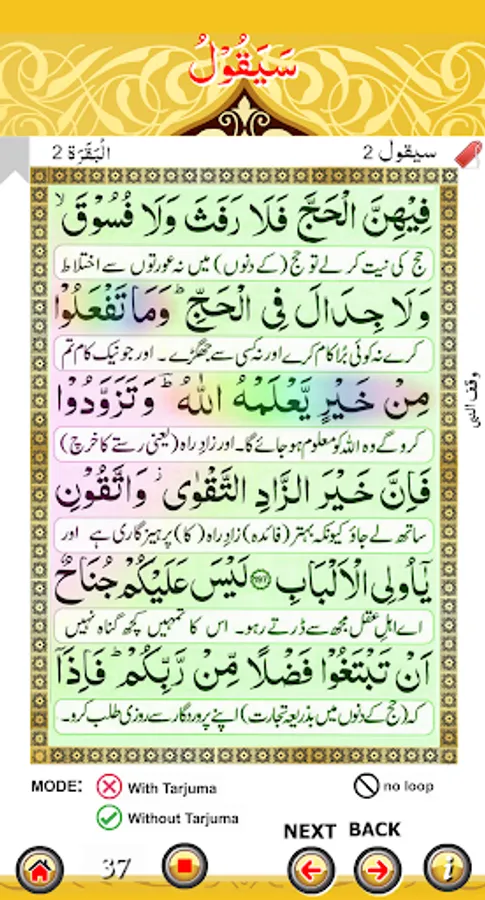 سَيَقُوْلُ
سیقول 2
اَلْبَقَرَة 2
فِيْهِنَّ الْحَجَّ فَلَا رَفَثَ وَلَا فُسُوْقَ ۙ
حج کی نیت کر لے تو حج (کے دنوں) میں نہ عورتوں سے اختلاط
وَلَا جِدَالَ فِی الْحَجِّ ؕ وَمَا تَفْعَلُوْا
کرے نہ کوئی بُرا کام کرے اور نہ کسی سے جھگڑے ۔ اور جو نیک کام تم
مِنْ خَيْرٍ يَّعْلَمْهُ اللّٰهُ ؔؕ وَتَزَوَّدُوْا
وقف النبی
کرو گے وہ اللہ کو معلوم ہو جائے گا۔ اور زادِ راہ (یعنی رستے کا خرچ)
فَاِنَّ خَيْرَ الزَّادِ التَّقْوٰی ز وَاتَّقُوْنِ
ساتھ لے جاؤ کیونکہ بہتر (فائدہ) زادِ راہ (کا) پرہیزگاری ہے اور
يٰۤاُولِی الْاَلْبَابِ ﴿۱۹۷﴾ لَيْسَ عَلَيْكُمْ جُنَاحٌ
اے اہلِ عقل مجھ سے ڈرتے رہو۔ اس کا تمہیں کچھ گناہ نہیں
اَنْ تَبْتَغُوْا فَضْلًا مِّنْ رَّبِّكُمْ ؕ فَاِذَاۤ
کہ (حج کے دنوں میں بذریعہ تجارت) اپنے پروردگار سے روزی طلب کرو۔
MODE: With Tarjuma
no loop
Without Tarjuma
NEXT BACK
37
i